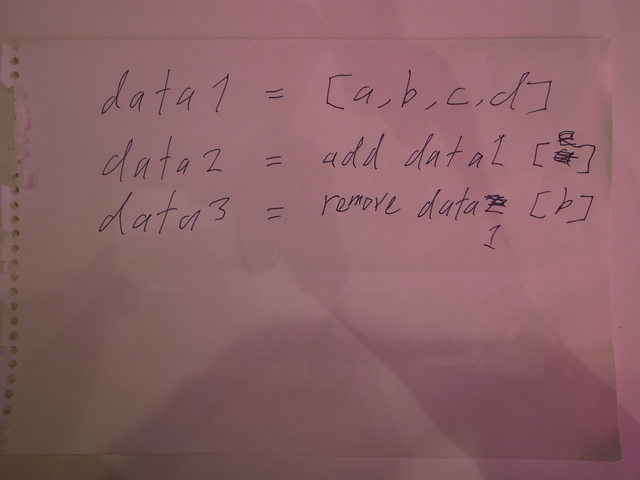 data1 = [a,b,c,d]
data2 = add data1 []
data3 = remove data1 [b]